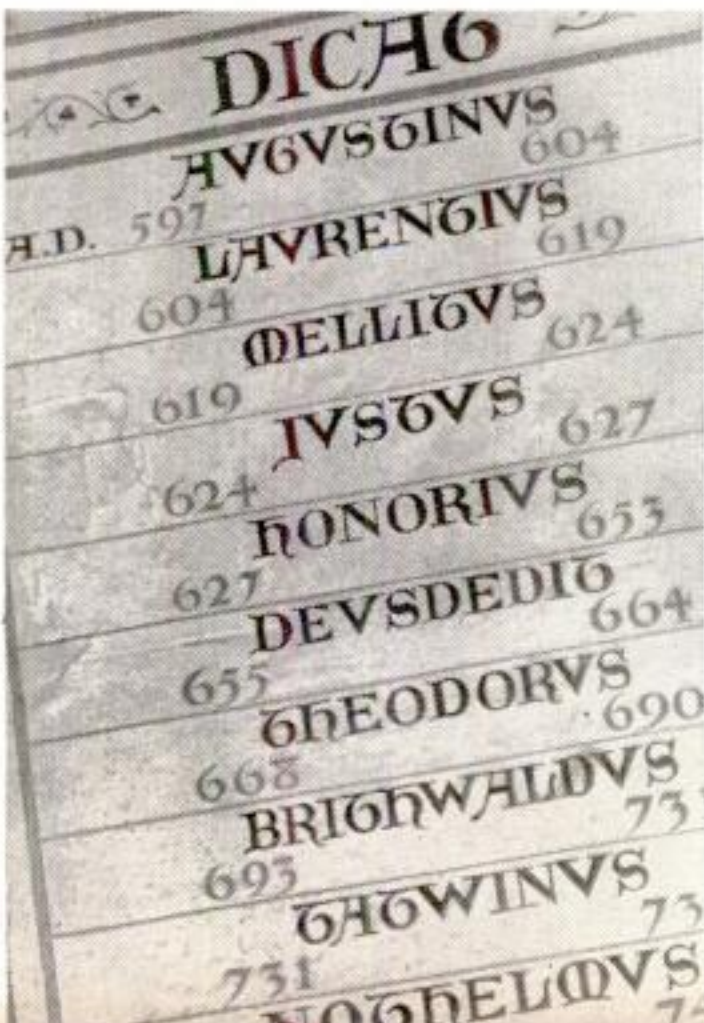 DICAT
AVGVSTINVS
A.D. 597 604
LAVRENTIVS
604 619
MELLITVS
619 624
IVSTVS
624 627
HONORIVS
627 653
DEVSDEDIT
655 664
THEODORVS
668 690
BRITHWALDVS
693 731
TATWINVS
731 73
NOTHELMVS
7